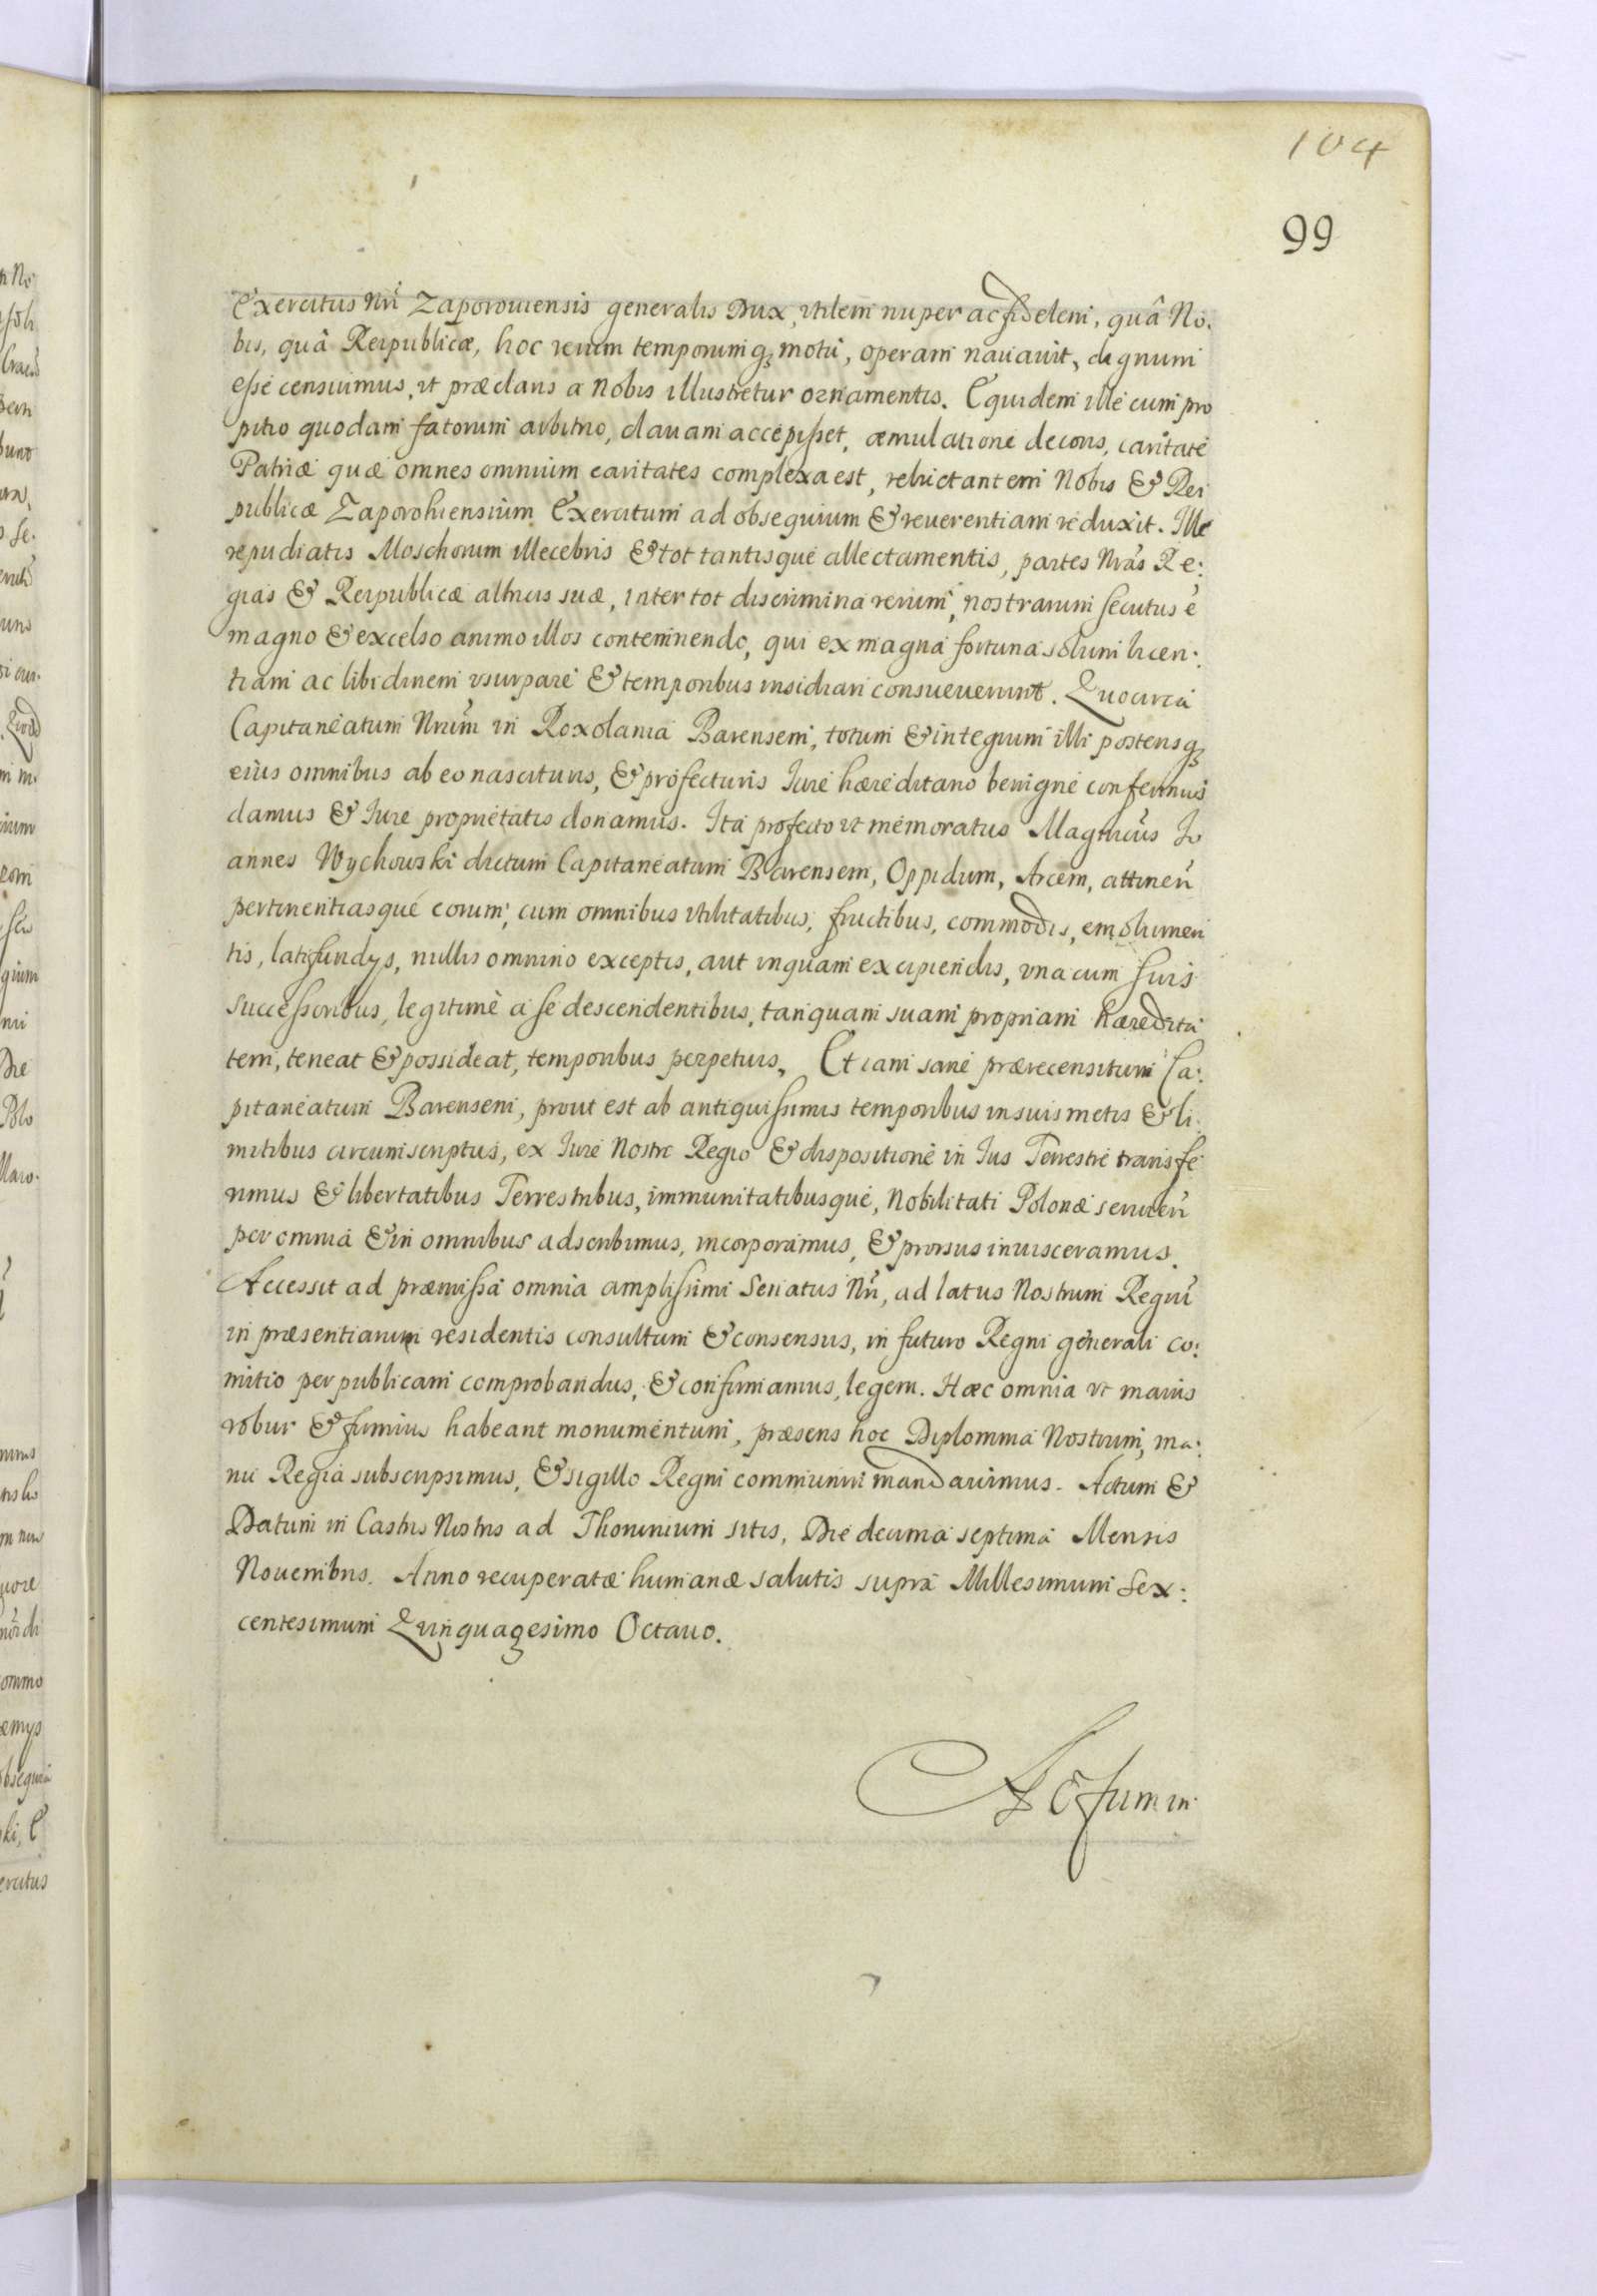 104
99
Exercitus Nri Zaporouiensis generalis Dux, vtilem nuper ac fidelem, quâ No.
bis, quâ Reipublicæ, hoc rerum temporumq3 motu, operam nauauit, dignum
esse censuimus, vt præclaris a Nobis illustretur ornamentis. Equidem ille cum pro
pitio quodam fatorum arbitrio, clauam accepisset, æmulatione decoris, caritate
Patriæ quæ omnes omnium caritates complexa est, reluctantem Nobis & Rei
publicæ Zaporohiensium Exercitum ad obsequium & reuerentiam reduxit. Ille
repudiatis Moschorum illecebris & tot tantisque allectamentis, partes Nras Re:
gias & Reipublicæ altricis suæ, inter tot discrimina rerum, nostrarum secutus é
magno & excelso animo illos contemnendo, qui ex magna fortuna solum licen:
tiam ac libidinem vsurpare & temporibus insidiari consueuerunt. Quocirca
Capitaneatum Nrum in Roxolania Barensem, totum & integrum illi posterisq3
eius omnibus ab eo nascituris, & profecturis Iure hæreditario benigne conferimus
damus & Iure proprietatis donamus. Ita profecto vt memoratus Magnicus Io
annes Wychowski dictum Capitaneatum Barensem, Oppidum, Arcem, attinen
pertinentiasque eorum, cum omnibus vtilitatibus, fructibus, commodis, emolumen
tis, latifundys, nullis omnino exceptis, aut inquam excipiendis, vna cum suis
successoribus, legitimè a se descendentibus, tanquam suam propriam hæredita
tem, teneat & possideat, temporibus perpetuis. Et iam sane prærecensitum Ca:
pitaneatum Barensem, prout est ab antiquissimis temporibus in suis metis & li:
mitibus circumscriptus, ex Iure Nostro Regio & dispositione in Ius Terrestre transfe
rimus & libertatibus Terrestribus, immunitatibusque, Nobilitati Polonæ seruien
per omnia & in omnibus adscribimus, incorporamus, & prorsus inuisceramus.
Accessit ad præmissa omnia amplissimi Senatus Nri, ad latus Nostrum Regiu
in præsentiarum residentis consultum & consensus, in futuro Regni generali co:
mitio per publicam comprobandus, & confirmamus, legem. Hæc omnia vt maius
robur & firmius habeant monumentum, præsens hoc Diplomma Nostrum, ma:
nu Regia subscripsimus, & sigillo Regni communiri mandauimus. Actum &
Datum in Castris Nostris ad Thorunium sitis, Die decima septima Mensis
Nouembris. Anno recuperatæ humanæ salutis supra Millesimum Sex:
centesimum Quinquagesimo Octauo.